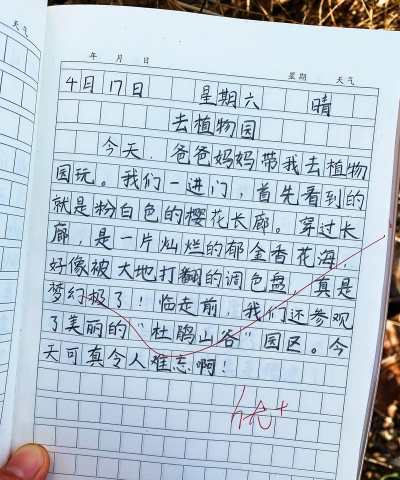 年 月 日 星期 天气
4日17日 星期六 晴
去植物园
今天，爸爸妈妈带我去植物
园玩。我们一进门，首先看到的
就是粉白色的樱花长廊。穿过长
廊，是一片灿烂的郁金香花海，
好像被大地打翻的调色盘，真是
梦幻极了！临走前，我们还参观
了美丽的“杜鹃山谷”园区。今
天可真令人难忘啊！
优+